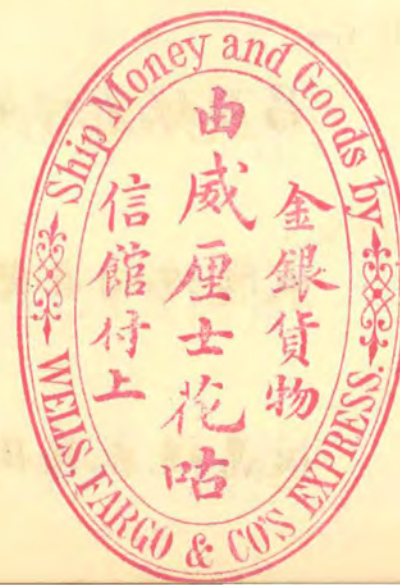 Ship Money and Goods by
WELLS, FARGO & CO'S EXPRESS.
金銀貨物
由威厘士花咕
信館付上